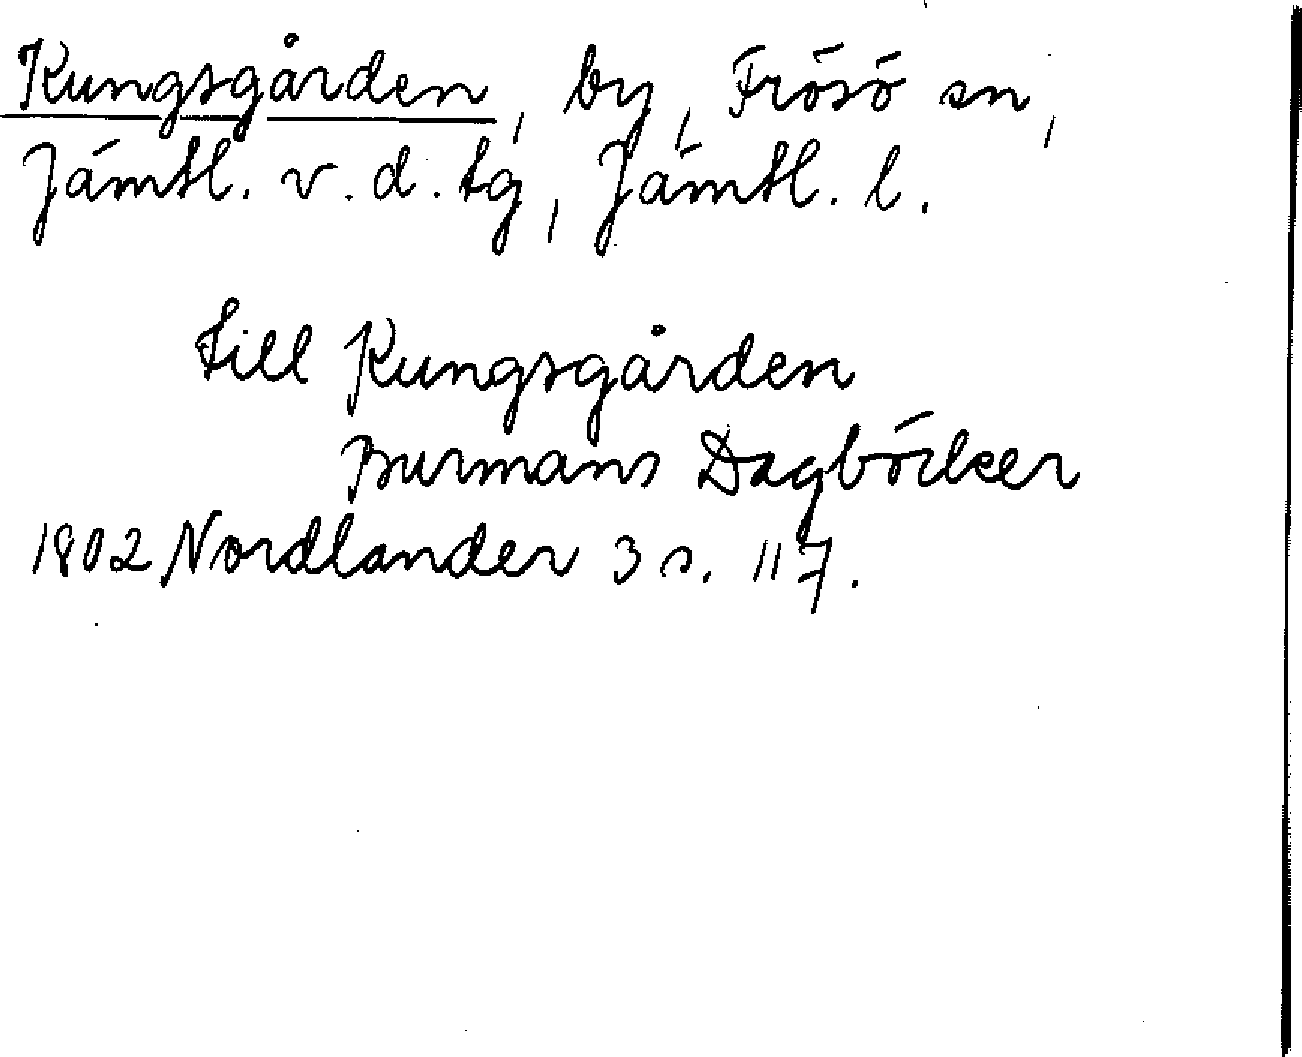 Kungsgården, by, Frösö sn,
Jämtl. v. d. tg, Jämtl. l.
till Kungsgården
Burmans Dagböcker
1802 Nordlander 3 s. 117.